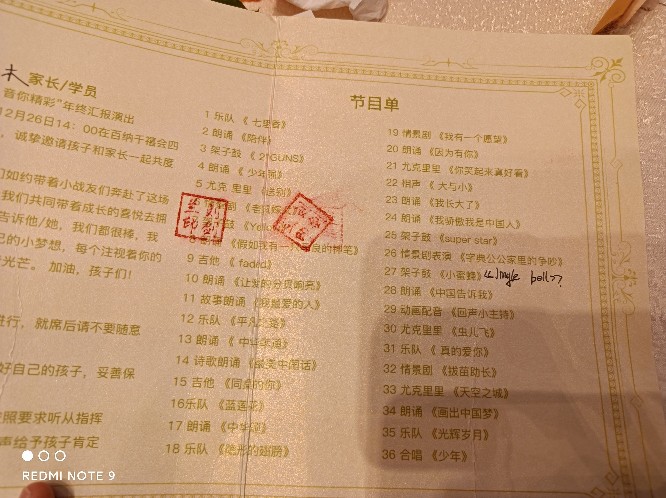 木 家长/学员
音你精彩"年终汇报演出
12月26日14：00在百纳千禧会四
，诚挚邀请孩子和家长一起共度
们如约带着小战友们奔赴了这场
我们共同带着成长的喜悦去拥
告诉他/她，我们都很棒，我
己的小梦想，每个注视着你的
光芒。 加油，孩子们！
进行，就席后请不要随意
好自己的孩子，妥善保
按照要求听从指挥
声给予孩子肯定
节目单
1 乐队 《 七里香》
2 朗诵 《陪伴》
3 架子鼓 《 2 GUNS》
4 朗诵 《 少年
5 尤克 里里 《送别》
《老鼠嫁
《Yello
《假如我有一 良的神笔》
9 吉他 《 faded》
10 朗诵 《让爱的分贝响亮》
11 故事朗诵 《我最爱的人》
12 乐队 《平凡之路》
13 朗诵 《 中华
14 诗歌朗诵 《最美中国话》
15 吉他 《同桌的你》
16乐队 《蓝莲花》
17 朗诵 《中华颂》
18 乐队 《隐形的翅膀》
19 情景剧 《我有一个愿望》
20 朗诵 《因为有你》
21 尤克里里 《你笑起来真好看》
22 相声 《 大与小》
23 朗诵 《我长大了》
24 朗诵 《我骄傲我是中国人》
25 架子鼓 《super star》
26 情景剧表演 《字典公公家里的争吵》
27 架子鼓 《小蜜蜂》《Jingle bell》
28 朗诵 《中国告诉我》
29 动画配音 《回声小主持》
30 尤克里里 《虫儿飞》
31 乐队 《 真的爱你》
32 情景剧 《拔苗助长》
33 尤克里里 《天空之城》
34 朗诵 《画出中国梦》
35 乐队 《光辉岁月》
36 合唱 《少年》
REDMI NOTE 9